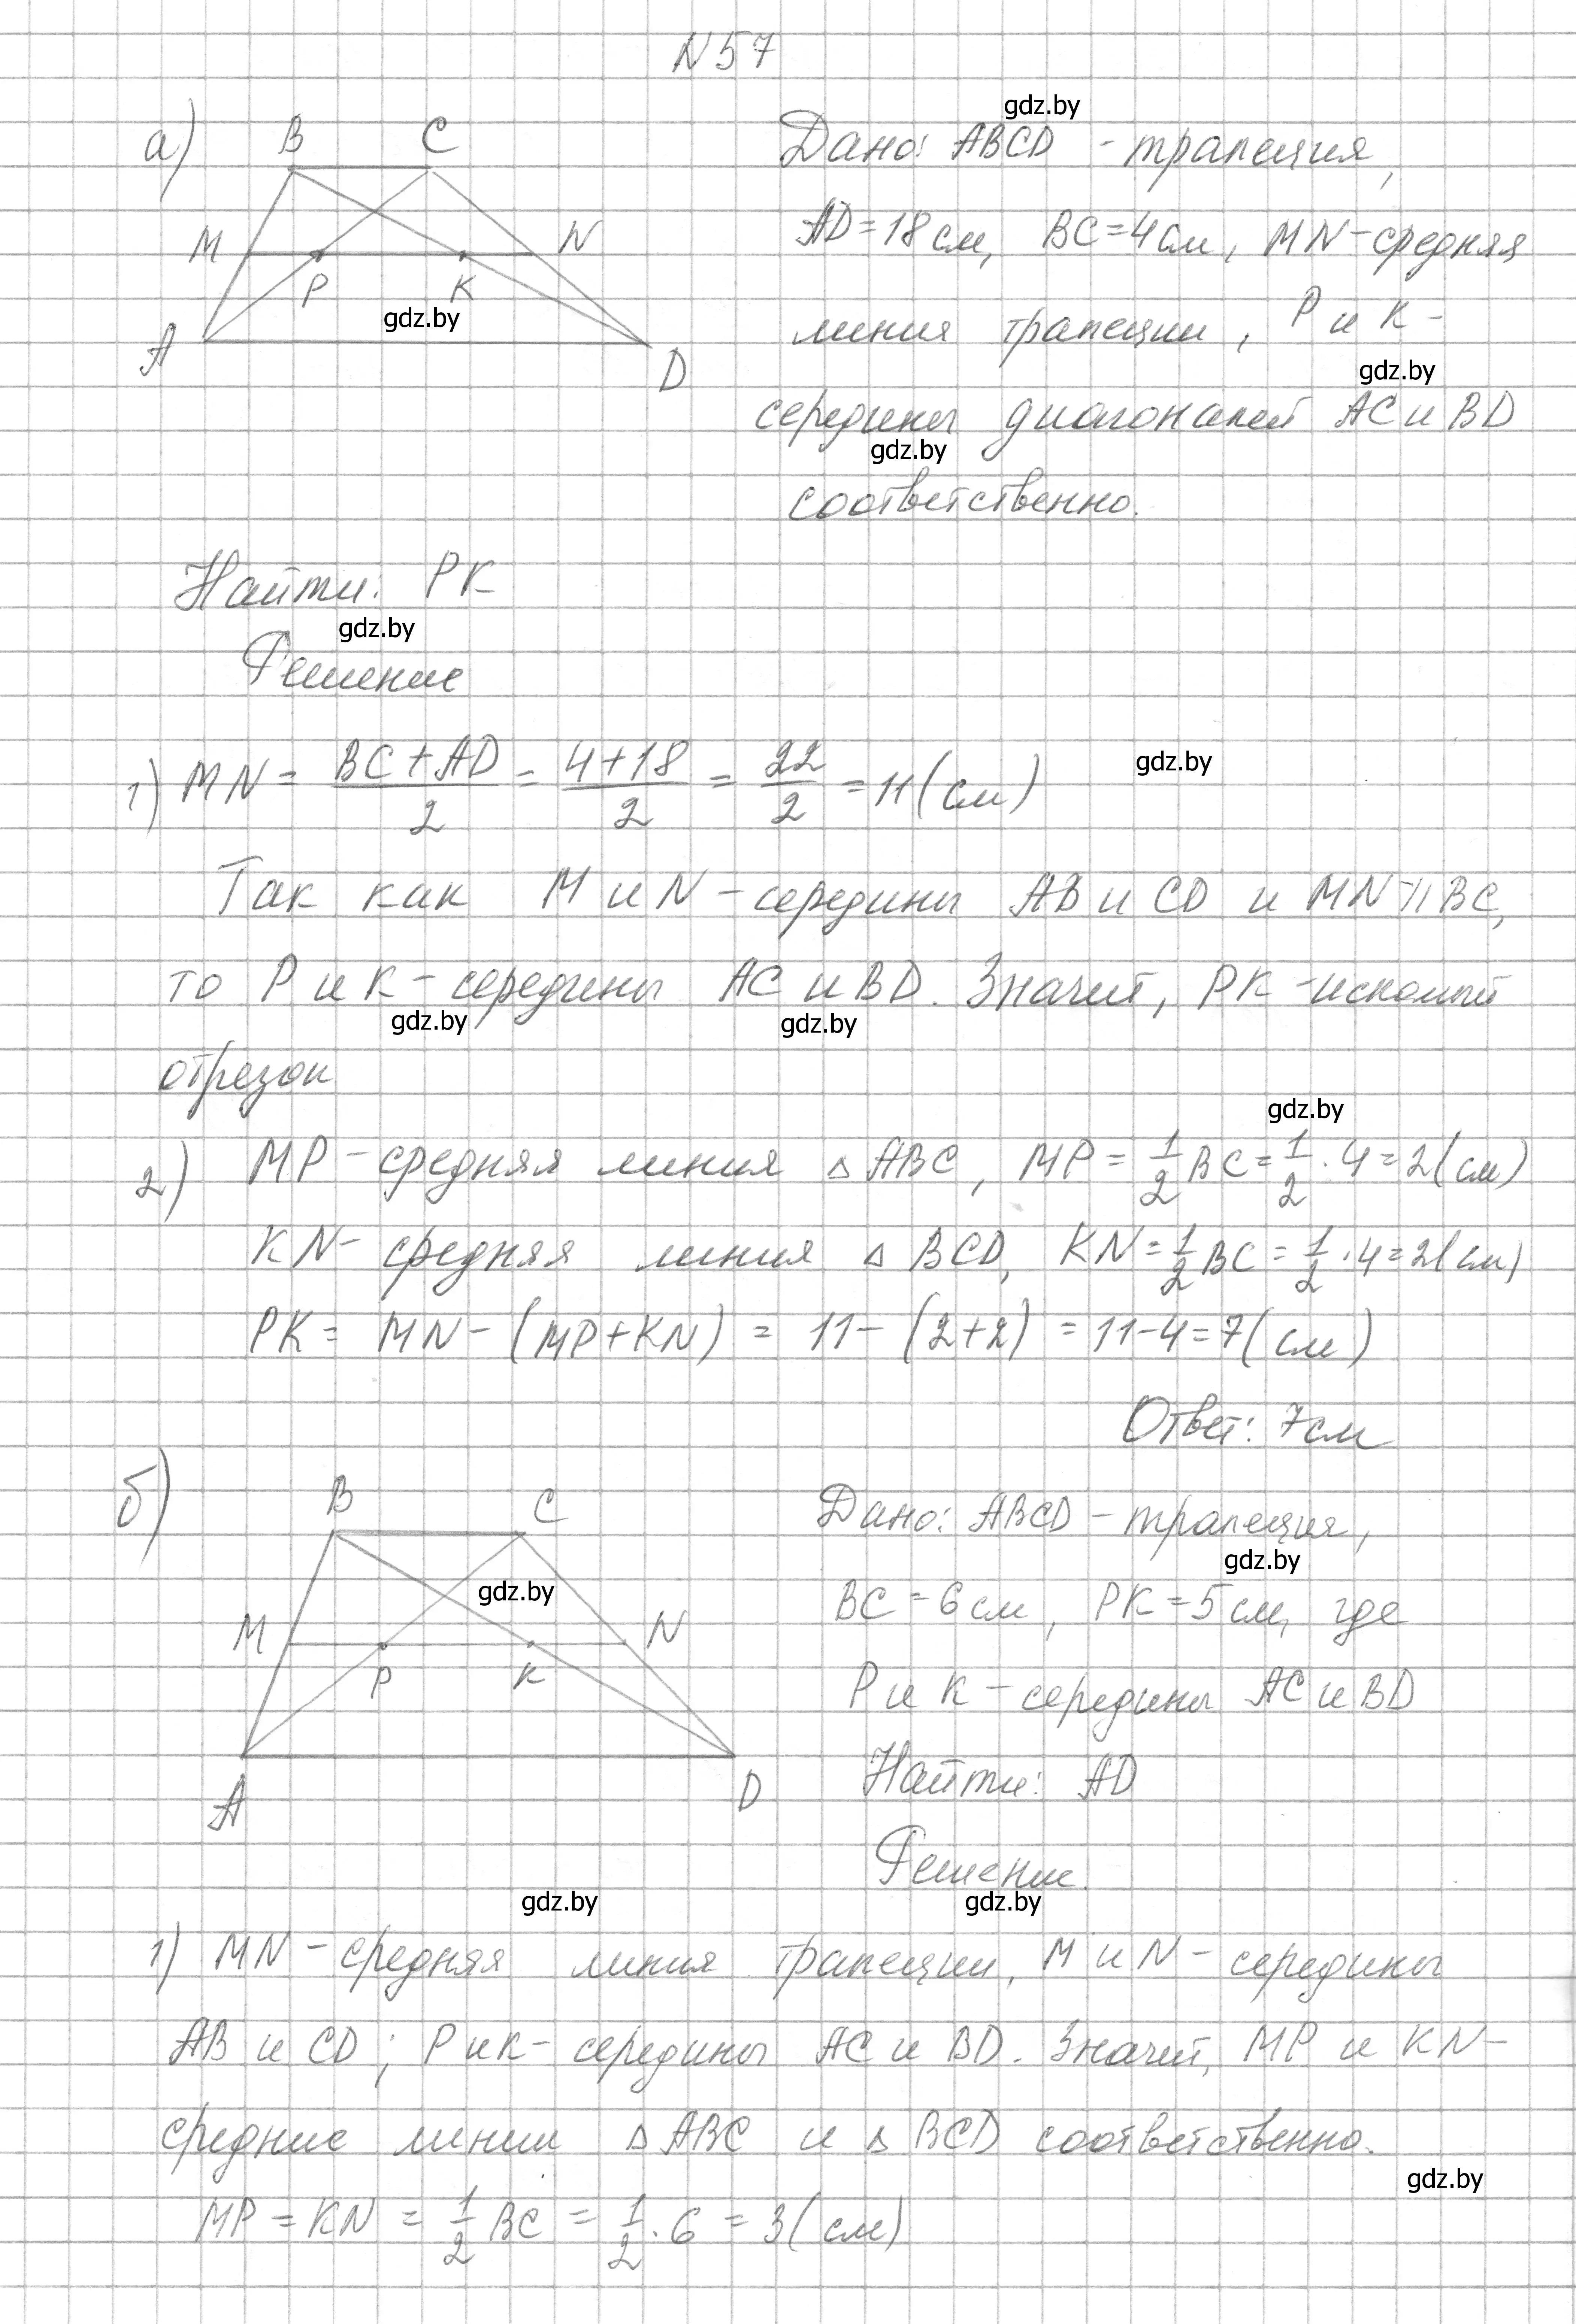 N57
gdz.by
а) B C
M N
P K
gdz.by
A D
Дано: ABCD - трапеция,
AD=18см, BC=4см, MN-средняя
линия трапеции, P и K-
gdz.by
середины диагоналей AC и BD
gdz.by
соответственно.
Найти: PK
gdz.by
Решение
1) MN = (BC+AD)/2 = (4+18)/2 = 22/2 = 11(см)
gdz.by
Так как M и N-середины AB и CD и MN ∥ BC,
то P и K-середины AC и BD. Значит, PK-искомый
gdz.by gdz.by
отрезок
gdz.by
2) MP-средняя линия △ABC, MP = 1/2 BC = 1/2 · 4 = 2(см)
KN- средняя линия △ BCD, KN = 1/2 BC = 1/2 · 4 = 2(см)
PK = MN - (MP+KN) = 11 - (2+2) = 11-4=7(см)
Ответ: 7см
б) B C
gdz.by
M N
P K
A D
Дано: ABCD - трапеция,
gdz.by
BC=6см, PK=5см, где
P и K-середины AC и BD
Найти: AD
Решение.
gdz.by gdz.by
1) MN-средняя линия трапеции, M и N-середины
AB и CD; P и K- середины AC и BD. Значит, MP и KN-
средние линии △ABC и △BCD соответственно.
gdz.by
MP = KN = 1/2 BC = 1/2 · 6 = 3(см)